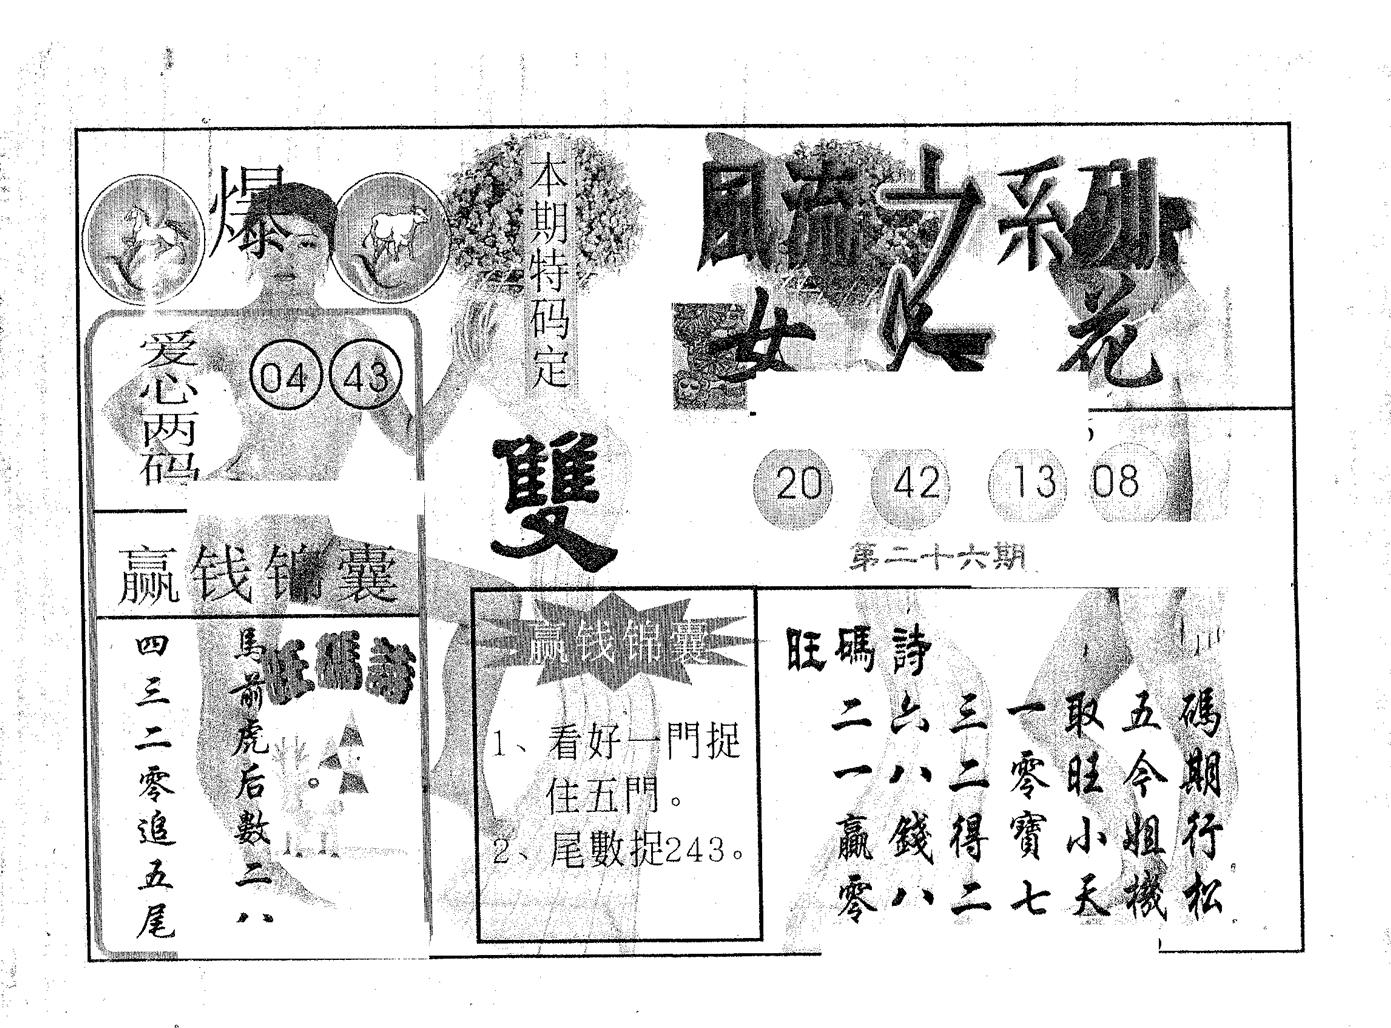 爆
本期特码定
雙
風流之系列
女人花
爱心两码
04 43
20 42 13 08
第二十六期
赢钱锦囊
旺碼詩
馬前虎后數二八
四三二零追五尾
赢钱锦囊
1、看好一門捉
住五門。
2、尾數捉243。
旺碼詩
二六三一取五碼
一八二零旺今期
贏錢得寶小姐行
零八二七天機松